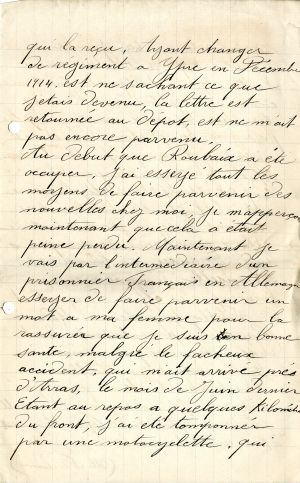 qui la reçu, Ayant changer
de regiment a Ypre en Décembre
1914. est ne sachant ce que
jetais devenu, la lettre est
retournée au dépot, est ne m'ait
pas encore parvenu.
Au debut que Roubaix a été
occuper, j'ai essayé tout les
moyens de faire parvenir des
nouvelles chez moi, je m'apperçois
maintenant que cela a était
peine perdu. Maintenant je
vais par l'intermédiaire d'un
prisonnier français en Allemagne
essayer de faire parvenir un
mot a ma femme pour la
rassurer que je suis en bonne
santé, malgré le facheux
accident, qui mait arrivé près
d'Arras, le mois de Juin dernier
Etant au repos a quelques Kilomètres
du front, j'ai été tomponner
par une motocyclette, qui